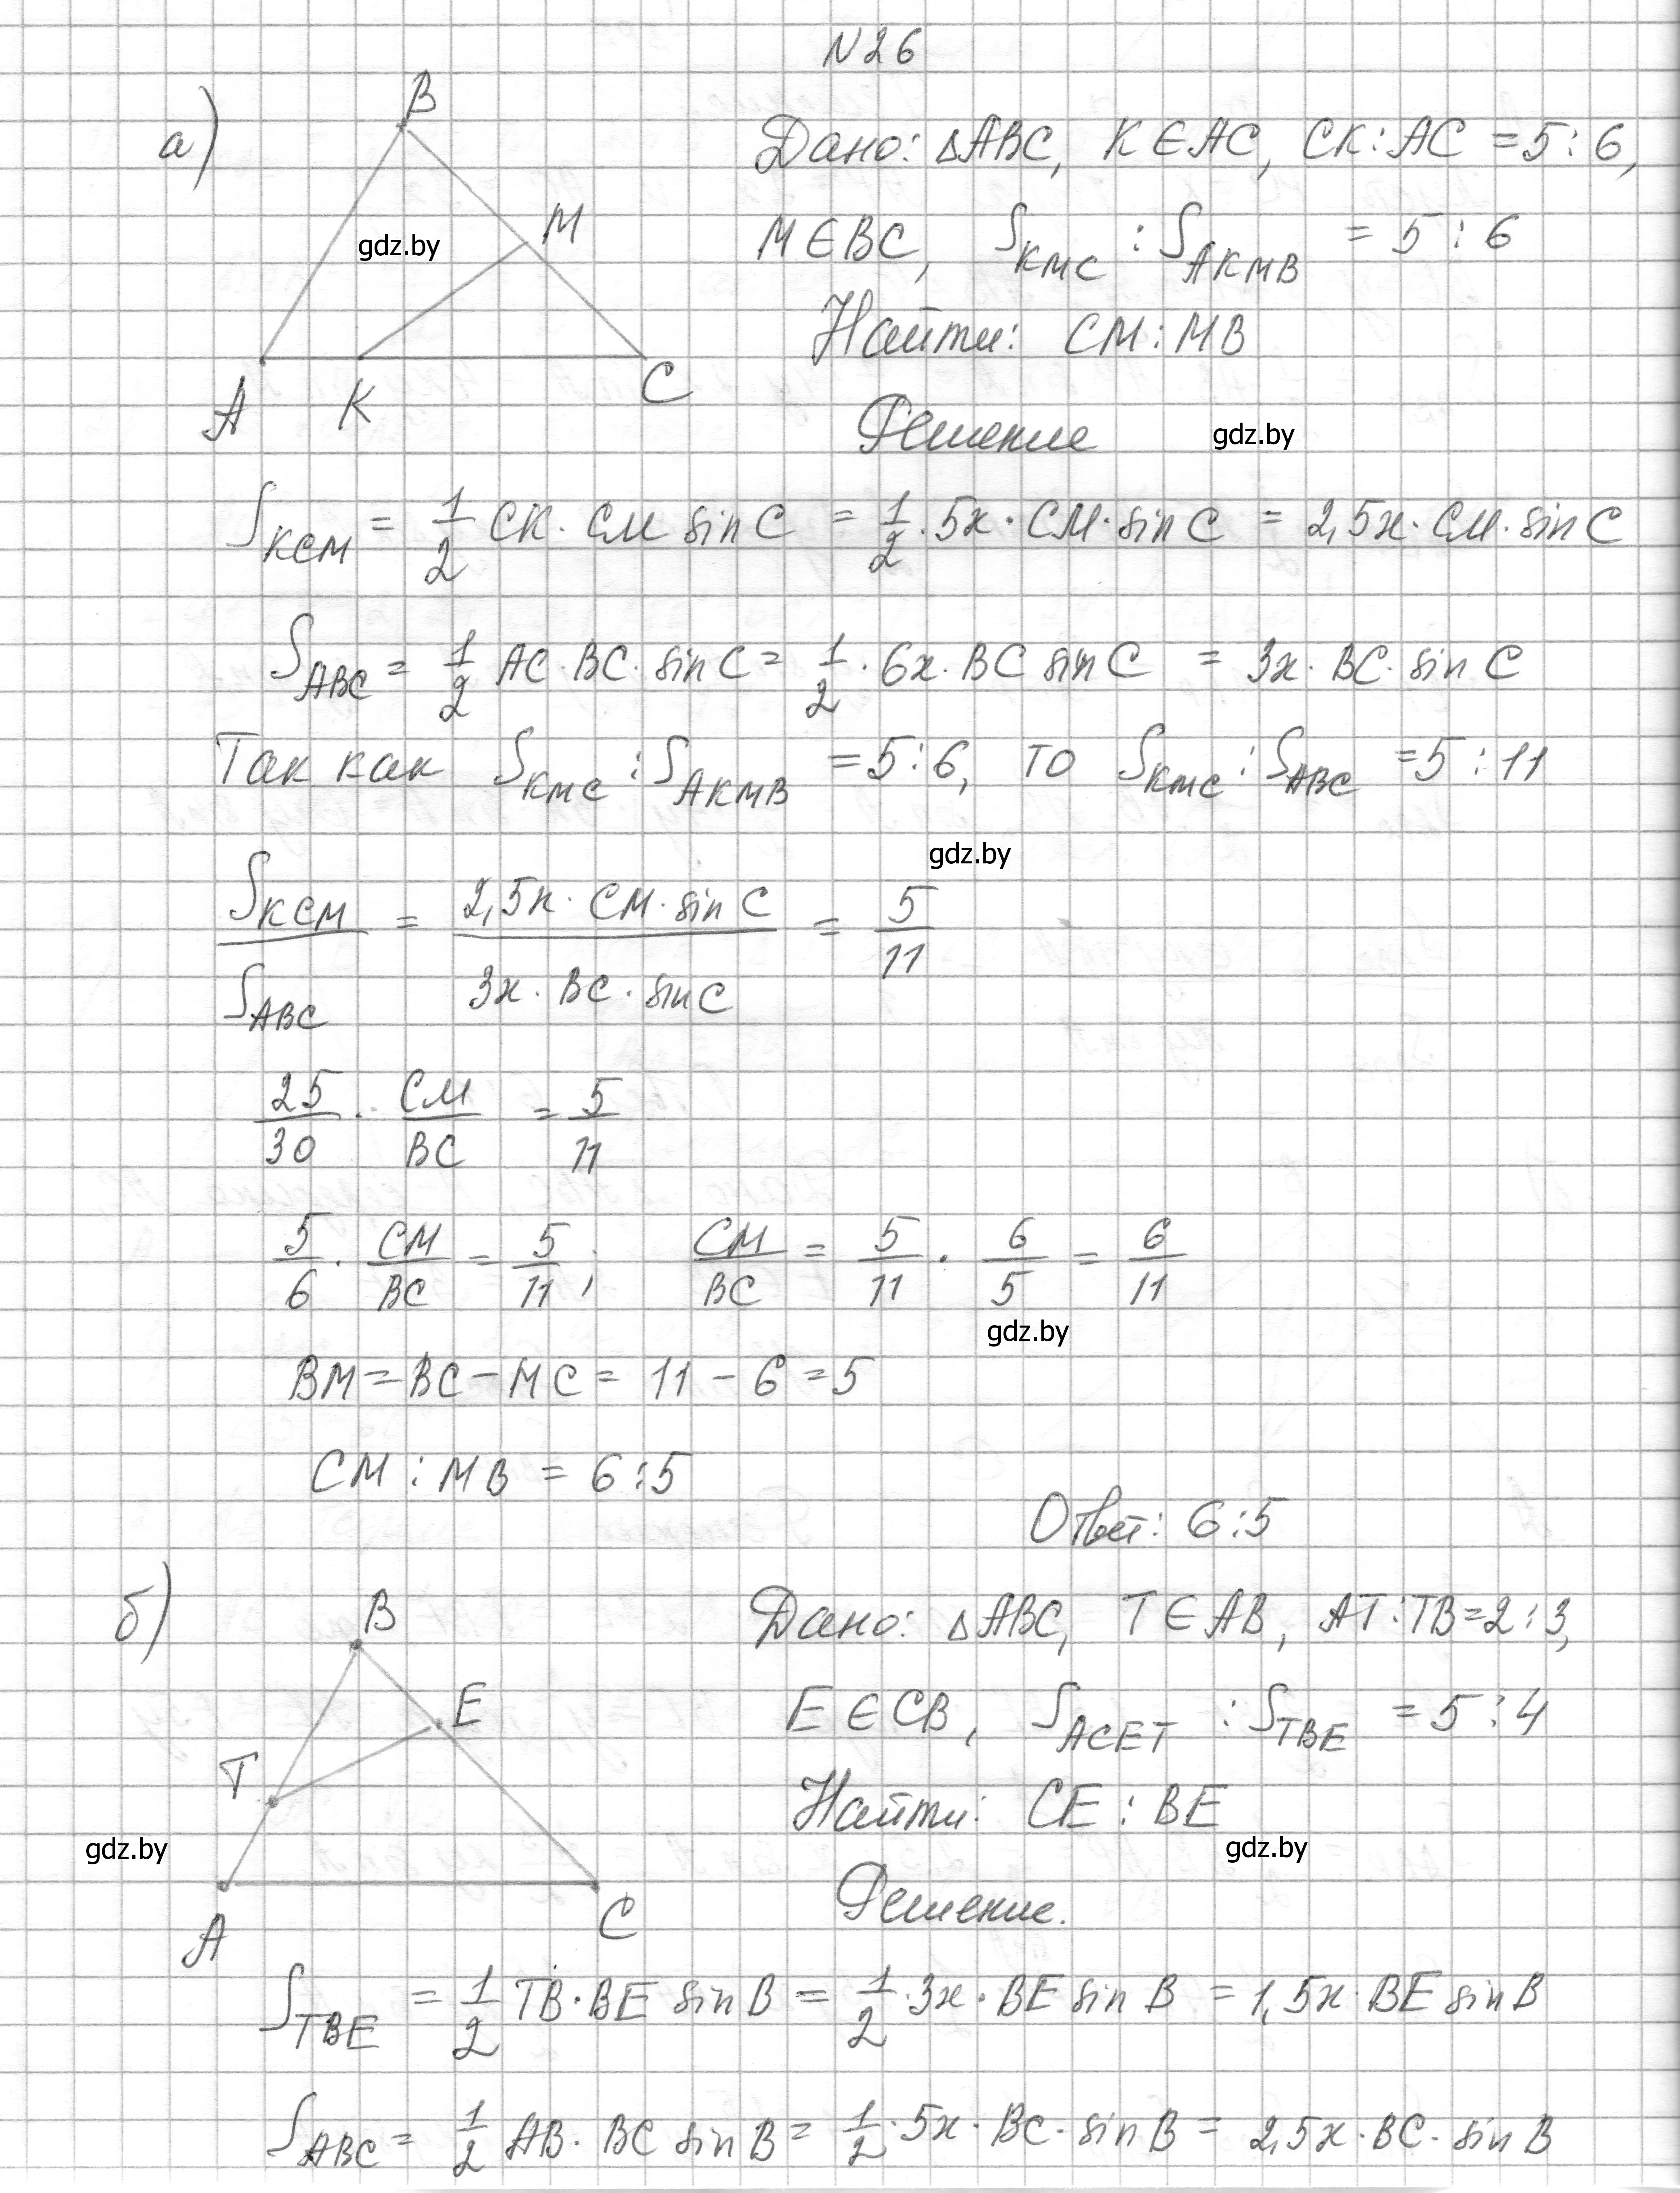 N26
а)
B
M
A
K
C
gdz.by
Дано: △ABC, K∈AC, CK:AC =5:6,
M∈BC, S_KMC : S_AKMB = 5:6
Найти: CM:MB
Решение
gdz.by
S_KCM = 1/2 CK·CM sinC = 1/2·5x·CM·sinC = 2,5x·CM·sinC
S_ABC = 1/2 AC·BC·sinC = 1/2·6x·BC sinC = 3x·BC·sinC
Так как S_KMC : S_AKMB =5:6, то S_KMC : S_ABC =5:11
gdz.by
S_KCM / S_ABC = 2,5x·CM·sinC / 3x·BC·sinC = 5/11
25/30 · CM/BC = 5/11
5/6 · CM/BC = 5/11; CM/BC = 5/11 · 6/5 = 6/11
gdz.by
BM=BC-MC= 11-6=5
CM:MB = 6:5
Ответ: 6:5
б)
B
E
T
A
C
gdz.by
Дано: △ABC, T∈AB, AT:TB=2:3,
E∈CB, S_ACET : S_TBE = 5:4
Найти: CE:BE
gdz.by
Решение.
S_TBE = 1/2 TB·BE sinB = 1/2·3x·BE sinB = 1,5x·BE sinB
S_ABC = 1/2 AB·BC sinB = 1/2·5x·BC·sinB = 2,5x·BC·sinB